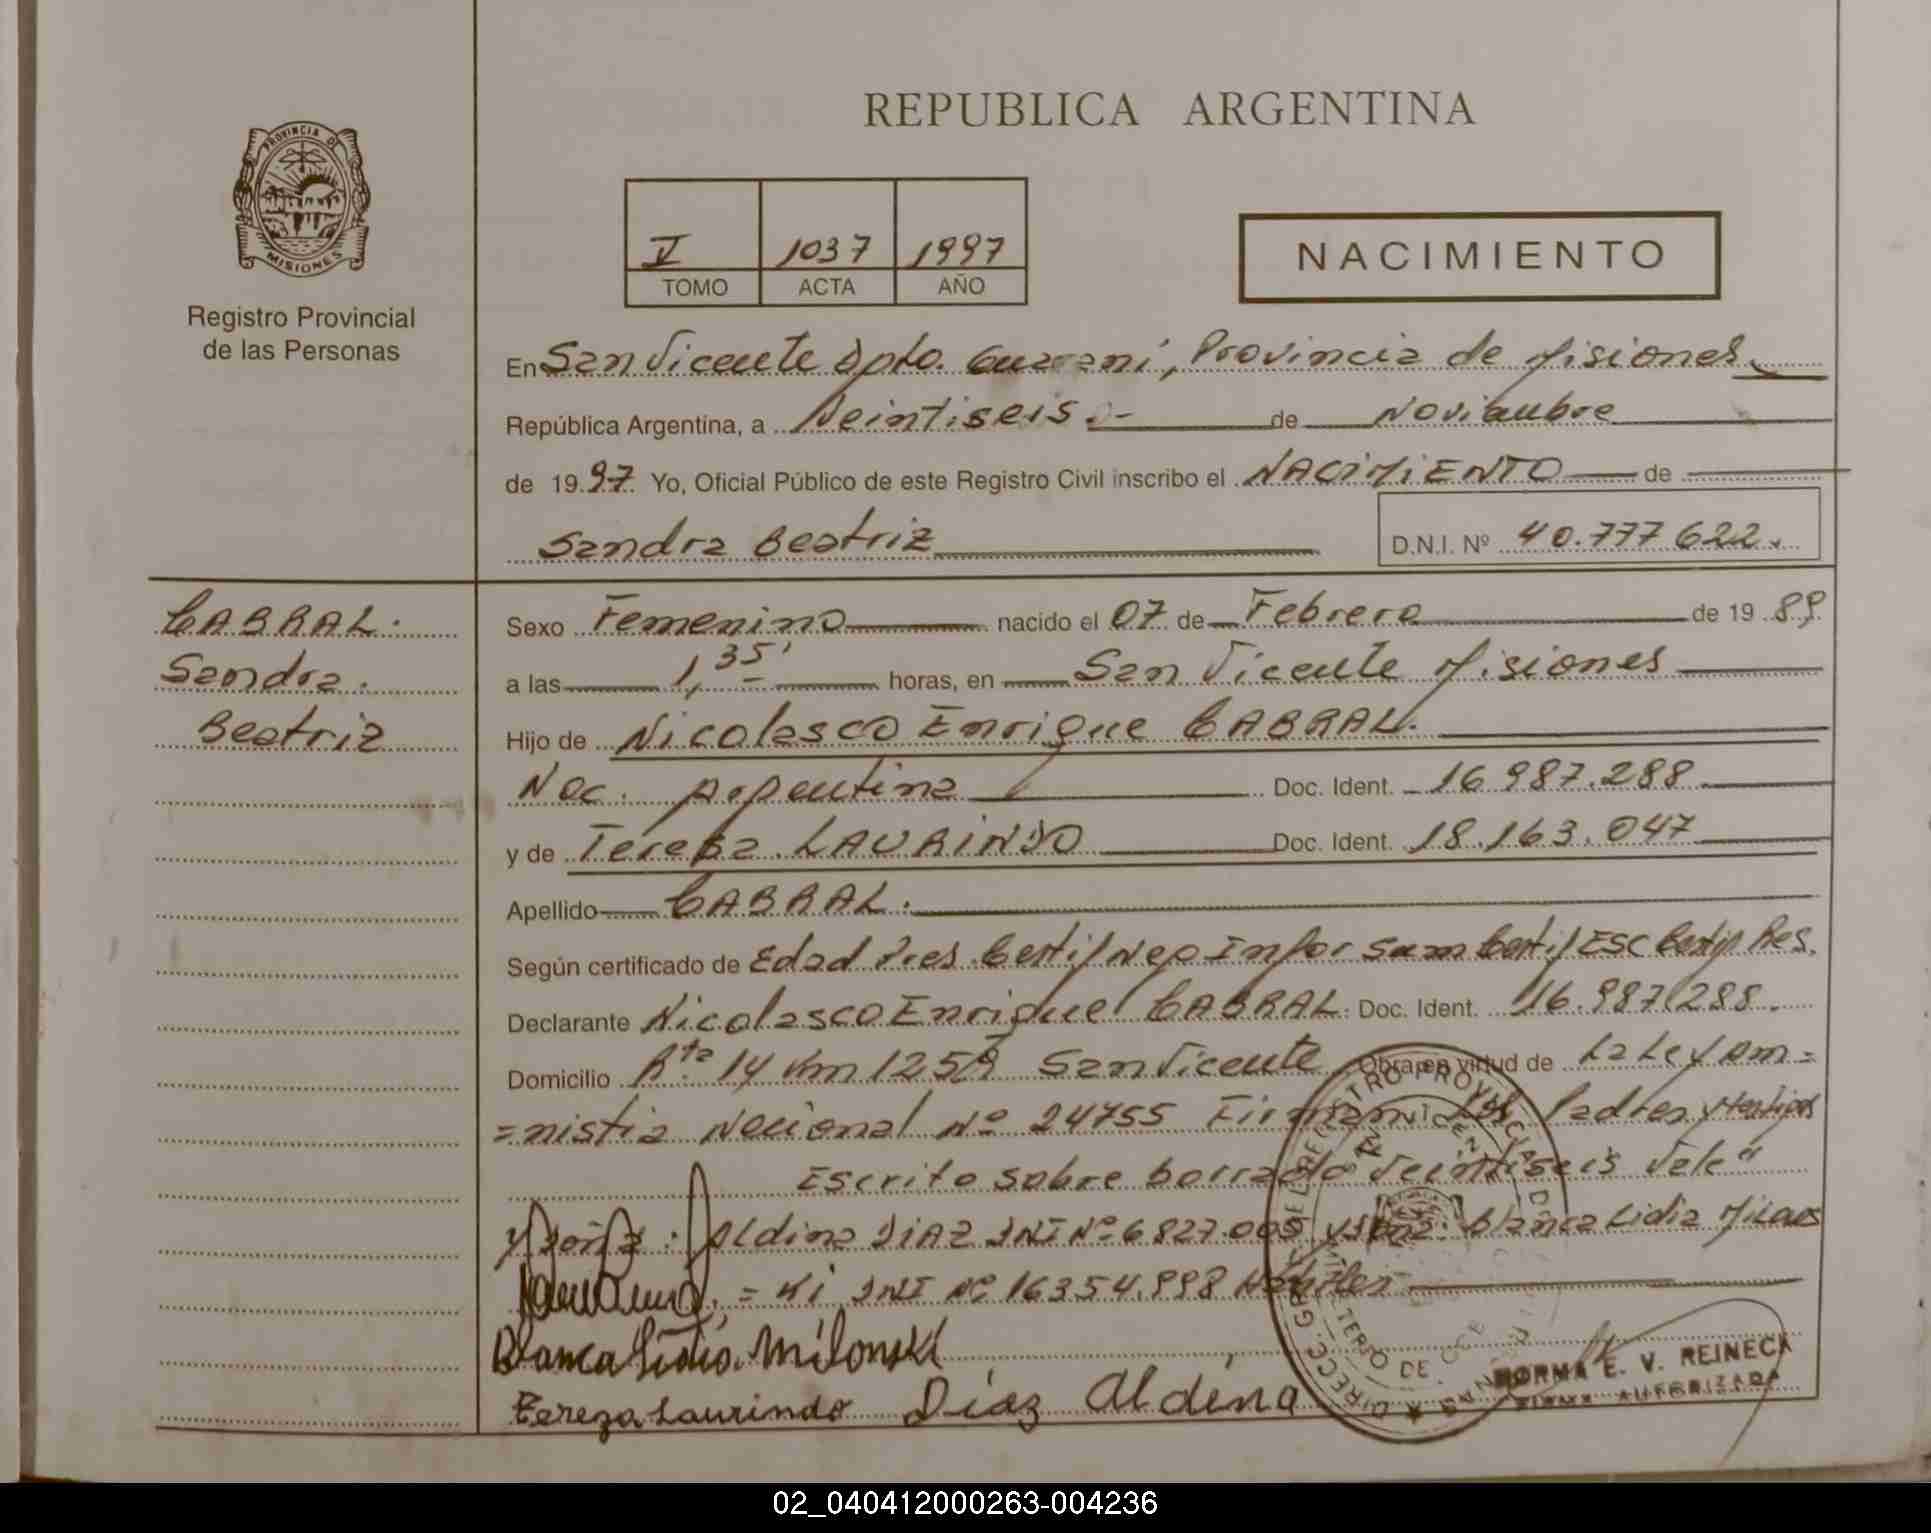 REPUBLICA ARGENTINA
PROVINCIA DE
MISIONES
Registro Provincial
de las Personas
V 1037 1997
TOMO ACTA AÑO
NACIMIENTO
En San Vicente Dpto. Guaraní, Provincia de Misiones
República Argentina, a Veintiseis de Noviembre
de 1997 Yo, Oficial Público de este Registro Civil inscribo el NACIMIENTO de
Sandra Beatriz D.N.I. Nº 40.777622.
CABRAL.
Sandra.
Beatriz
Sexo Femenino nacido el 07 de Febrero de 1989
a las 1,35' horas, en San Vicente Misiones
Hijo de Nicolasco Enrique CABRAL.
Nac. Argentina Doc. Ident. 16987.288
y de Tereza LAURINDO Doc. Ident. 18.163.047
Apellido CABRAL.
Según certificado de Edad Pres. Certif Neg Infor Sum Certif ESC Certif Res.
Declarante Nicolasco Enrique CABRAL. Doc. Ident. 16.987.288.
Domicilio Rta 14 Km 1259 San Vicente Obra en virtud de La Ley Am=
=nistia Nacional Nº 24755 Firman Los Padres y testigos
Escrito sobre borrado Veintiseis Vale"
Aldina DIAZ DNI Nº 6827.005 Blanca Lidia Milaos
=ki DNI Nº 16354.998
Blanca Lidia Milonski
Tereza Laurindo Díaz Aldina
NORMA E. V. REINECK
FIRMA AUTORIZADA
02_040412000263-004236